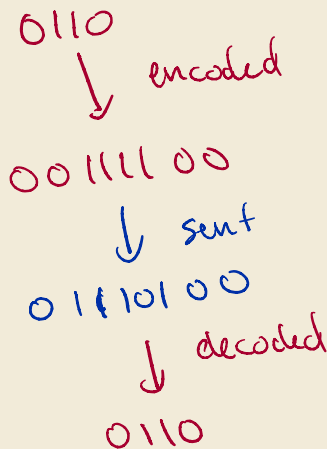 0110
encoded
00111100
sent
01110100
decoded
0110